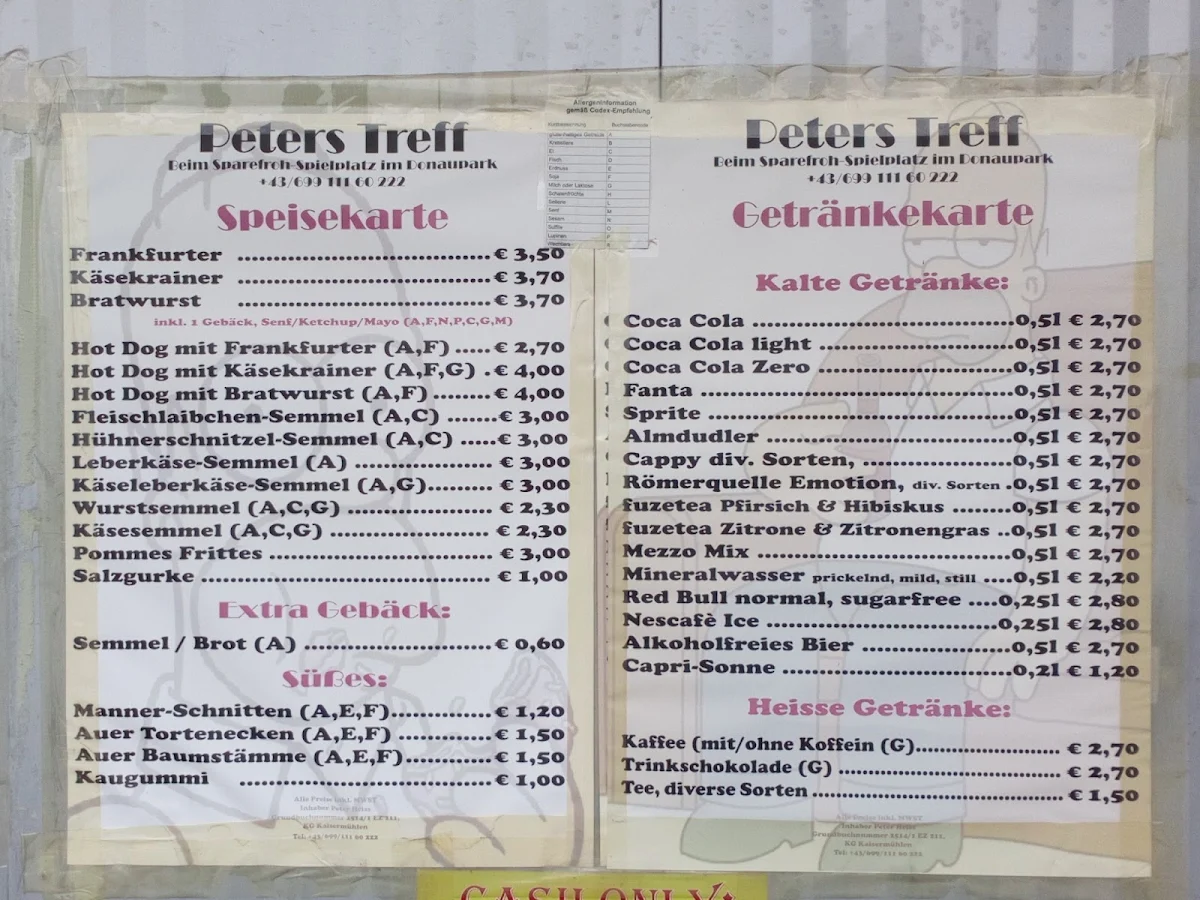 Peters Treff
Beim Sparefroh-Spielplatz im Donaupark
+43/699 111 60 222
Speisekarte
Frankfurter ........................................ € 3,50
Käsekrainer ........................................ € 3,70
Bratwurst ........................................ € 3,70
inkl. 1 Gebäck, Senf/Ketchup/Mayo (A,F,N,P,C,G,M)
Hot Dog mit Frankfurter (A,F) ..... € 2,70
Hot Dog mit Käsekrainer (A,F,G) . € 4,00
Hot Dog mit Bratwurst (A,F) ........ € 4,00
Fleischlaibchen-Semmel (A,C) ....... € 3,00
Hühnerschnitzel-Semmel (A,C) ..... € 3,00
Leberkäse-Semmel (A) ..................... € 3,00
Käseleberkäse-Semmel (A,G).......... € 3,00
Wurstsemmel (A,C,G) ....................... € 2,30
Käsesemmel (A,C,G) ........................ € 2,30
Pommes Frittes .................................. € 3,00
Salzgurke ............................................ € 1,00
Extra Gebäck:
Semmel / Brot (A) ............................ € 0,60
Süßes:
Manner-Schnitten (A,E,F)............... € 1,20
Auer Tortenecken (A,E,F) .............. € 1,50
Auer Baumstämme (A,E,F)............. € 1,50
Kaugummi ...................................... € 1,00
Alle Preise inkl. MWST
Inhaber Peter Heiss
KG Kaisermühlen
Tel: +43/699/111 60 222
Allergeninformation
gemäß Codex-Empfehlung
Kurzbezeichnung Buchstabencode
glutenhaltiges Getreide A
Krebstiere B
Ei C
Fisch D
Erdnuss E
Soja F
Milch oder Laktose G
Schalenfrüchte H
Sellerie L
Senf M
Sesam N
Sulfite O
Lupinen P
Weichtiere
Peters Treff
Beim Sparefroh-Spielplatz im Donaupark
+43/699 111 60 222
Getränkekarte
Kalte Getränke:
Coca Cola ........................................0,5l € 2,70
Coca Cola light ..............................0,5l € 2,70
Coca Cola Zero ...............................0,5l € 2,70
Fanta ................................................0,5l € 2,70
Sprite ...............................................0,5l € 2,70
Almdudler ......................................0,5l € 2,70
Cappy div. Sorten, .......................0,5l € 2,70
Römerquelle Emotion, div. Sorten .0,5l € 2,70
fuzetea Pfirsich & Hibiskus .........0,5l € 2,70
fuzetea Zitrone & Zitronengras ..0,5l € 2,70
Mezzo Mix .......................................0,5l € 2,70
Mineralwasser prickelnd, mild, still ....0,5l € 2,20
Red Bull normal, sugarfree ....0,25l € 2,80
Nescafè Ice ...................................0,25l € 2,80
Alkoholfreies Bier .......................0,5l € 2,70
Capri-Sonne ...................................0,2l € 1,20
Heisse Getränke:
Kaffee (mit/ohne Koffein (G)....................... € 2,70
Trinkschokolade (G) .................................... € 2,70
Tee, diverse Sorten ........................................ € 1,50
Alle Preise inkl. MWST
Inhaber Peter Heiss
KG Kaisermühlen
Tel: +43/699/111 60 222
CASH ONLY